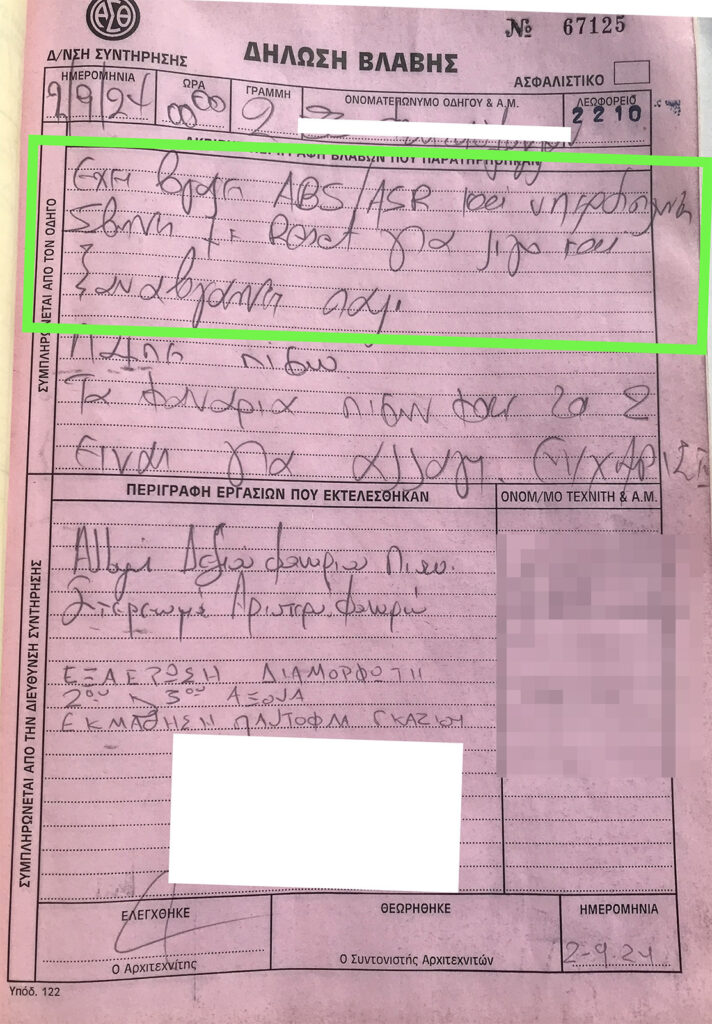 ΑΣΘ
Δ/ΝΣΗ ΣΥΝΤΗΡΗΣΗΣ
ΔΗΛΩΣΗ ΒΛΑΒΗΣ
№ 67125
ΑΣΦΑΛΙΣΤΙΚΟ
ΗΜΕΡΟΜΗΝΙΑ ΩΡΑ ΓΡΑΜΜΗ ΟΝΟΜΑΤΕΠΩΝΥΜΟ ΟΔΗΓΟΥ & Α.Μ. ΛΕΩΦΟΡΕΙΟ
2/9/24 00 00 2 2210
ΠΕΡΙΓΡΑΦΗ ΒΛΑΒΩΝ ΠΟΥ ΠΑΡΑΤΗΡΗΘΗΚΑΝ
ΣΥΜΠΛΗΡΩΝΕΤΑΙ ΑΠΟ ΤΟΝ ΟΔΗΓΟ
Εχει βγαλει ABS/ASR και
Σβηνη με Reset για λιγο και
ξαναβγαινη παλι.
πισω
Τα φαναρια πισω και τα 2
ειναι για αλλαγη. ΕΥΧΑΡΙΣΤΩ
ΠΕΡΙΓΡΑΦΗ ΕΡΓΑΣΙΩΝ ΠΟΥ ΕΚΤΕΛΕΣΘΗΚΑΝ
ΟΝΟΜ/ΜΟ ΤΕΧΝΙΤΗ & Α.Μ.
ΣΥΜΠΛΗΡΩΝΕΤΑΙ ΑΠΟ ΤΗΝ ΔΙΕΥΘΥΝΣΗ ΣΥΝΤΗΡΗΣΗΣ
Αλλαγή Δεξιού φαναριού πισω.
Στερέωμα Αριστερού φαναριού
ΕΞΑΕΡΩΣΗ ΔΙΑΜΟΡΦΩΤΗ
2ου 3ου ΑΞΟΝΑ
ΕΚΜΑΘΗΣΗ ΠΑΝΤΟΦΛΑ ΓΚΑΖΙΟΥ
ΕΛΕΓΧΘΗΚΕ
ΘΕΩΡΗΘΗΚΕ
ΗΜΕΡΟΜΗΝΙΑ
2-9-24
Ο Αρχιτεχνίτης
Ο Συντονιστής Αρχιτεχνιτών
Υπόδ. 122